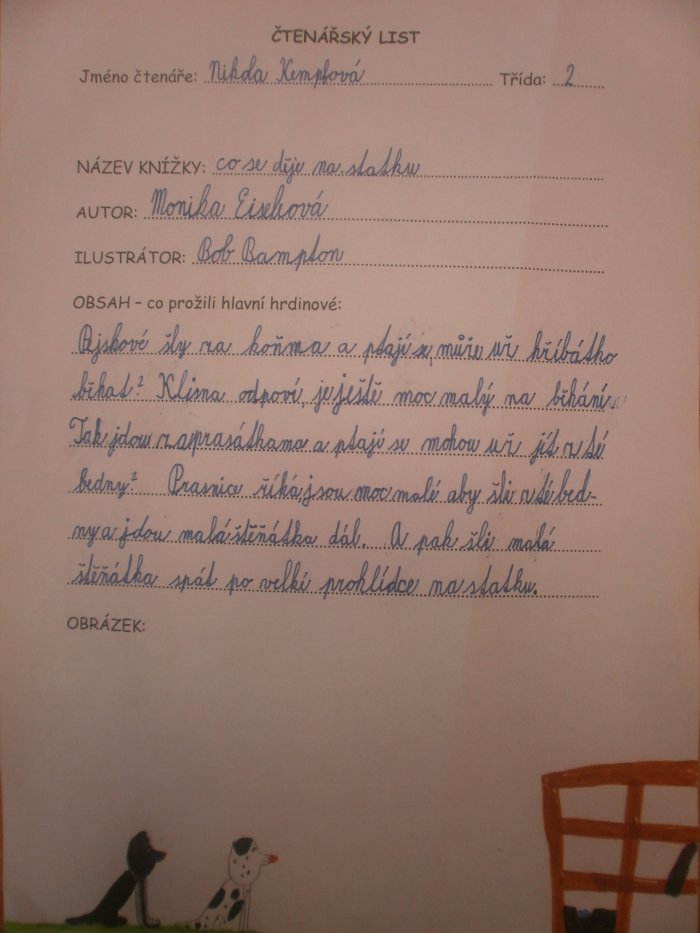 ČTENÁŘSKÝ LIST
Jméno čtenáře: Nikola Kempfová Třída: 2
NÁZEV KNÍŽKY: co se děje na statku
AUTOR: Monika
ILUSTRÁTOR: Bob Bampton
OBSAH – co prožili hlavní hrdinové:
Pejskové šly za koňma a ptají se, můře uř hříbátko
běhat? Klisna odpoví, je ještě moc malý na běhání
Tak jdou za prasátkama a ptají se mohou uř jít z té
bedny? Prasnice říká, jsou moc malé aby šli z té bed-
ny a jdou malá štěňátka dál. A pak šli malá
štěňátka spát po velkí prohlídce na statku.
OBRÁZEK: